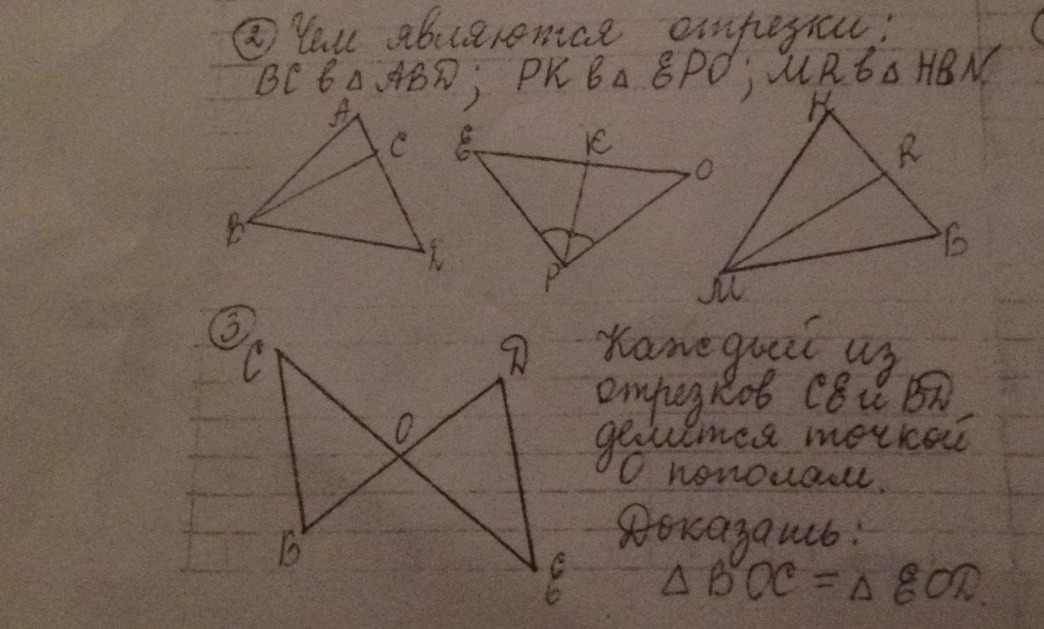 ② Чем являются отрезки:
BC в △ ABD; PK в △ EPO; MR в △ HBN.
A C B D
E K O P
H R B M
③
C D O B E
Каждый из
отрезков CE и BD
делится точкой
O пополам.
Доказать:
△ BOC = △ EOD.